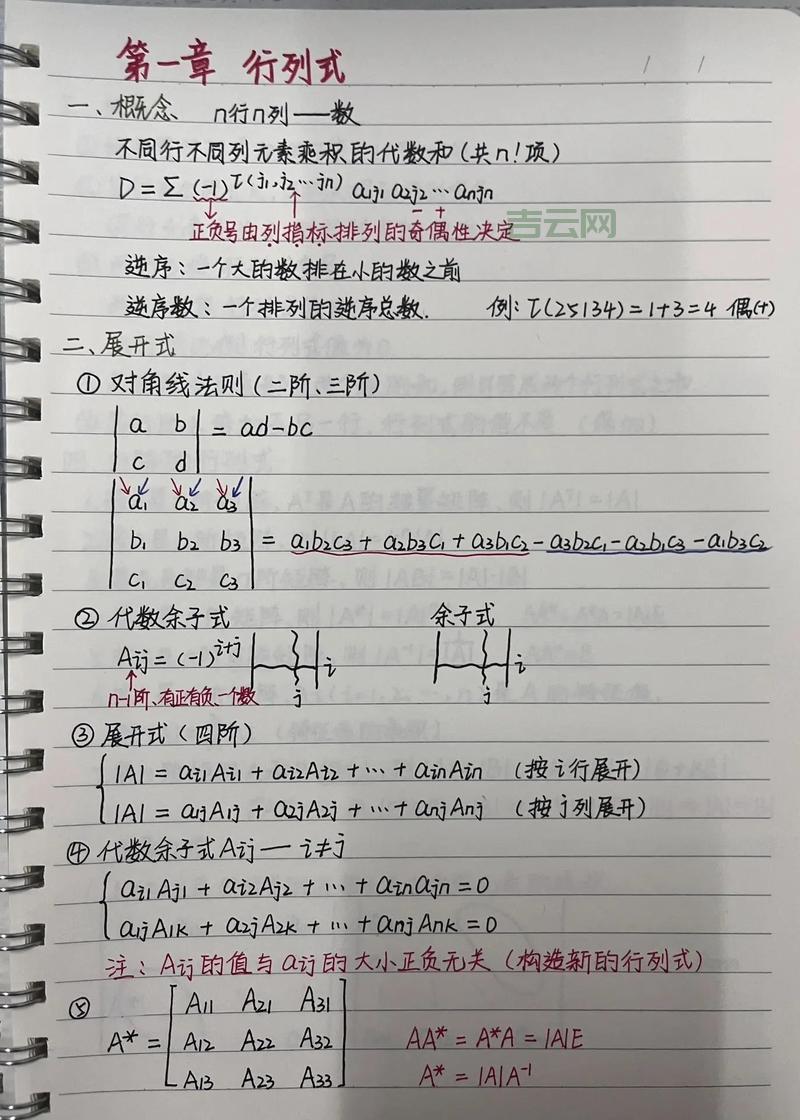 第一章 行列式
一、概念 n行n列——数
不同行不同列元素乘积的代数和(共n!项)
D = Σ (-1)^τ(j₁,j₂…jn) a₁j₁ a₂j₂ … anjn
− +
正负号由列指标排列的奇偶性决定
吉云网
逆序：一个大的数排在小的数之前
逆序数：一个排列的逆序总数. 例: τ(25134)=1+3=4 偶(+)
二、展开式
① 对角线法则(二阶、三阶)
| a b | = ad-bc
| c d |
| a₁ a₂ a₃ |
| b₁ b₂ b₃ | = a₁b₂c₃ + a₂b₃c₁ + a₃b₁c₂ - a₃b₂c₁ - a₂b₁c₃ - a₁b₃c₂
| c₁ c₂ c₃ |
② 代数余子式 余子式
Aij = (-1)^i+j i i
j j
n-1阶、有正有负、一个数
③ 展开式(四阶)
|A| = ai1Ai1 + ai2Ai2 + … + ainAin (按i行展开)
|A| = a1jA1j + a2jA2j + … + anjAnj (按j列展开)
④ 代数余子式Aij — i≠j
ai1Aj1 + ai2Aj2 + … + ainajn = 0
a1jA1k + a2jA2k + … + anjAnk = 0
注：Aij的值与aij的大小正负无关(构造新的行列式)
⑤
A₁₁ A₂₁ A₃₁
A* = A₁₂ A₂₂ A₃₂ AA* = A*A = |A|E
A₁₃ A₂₃ A₃₃ A* = |A|A⁻¹